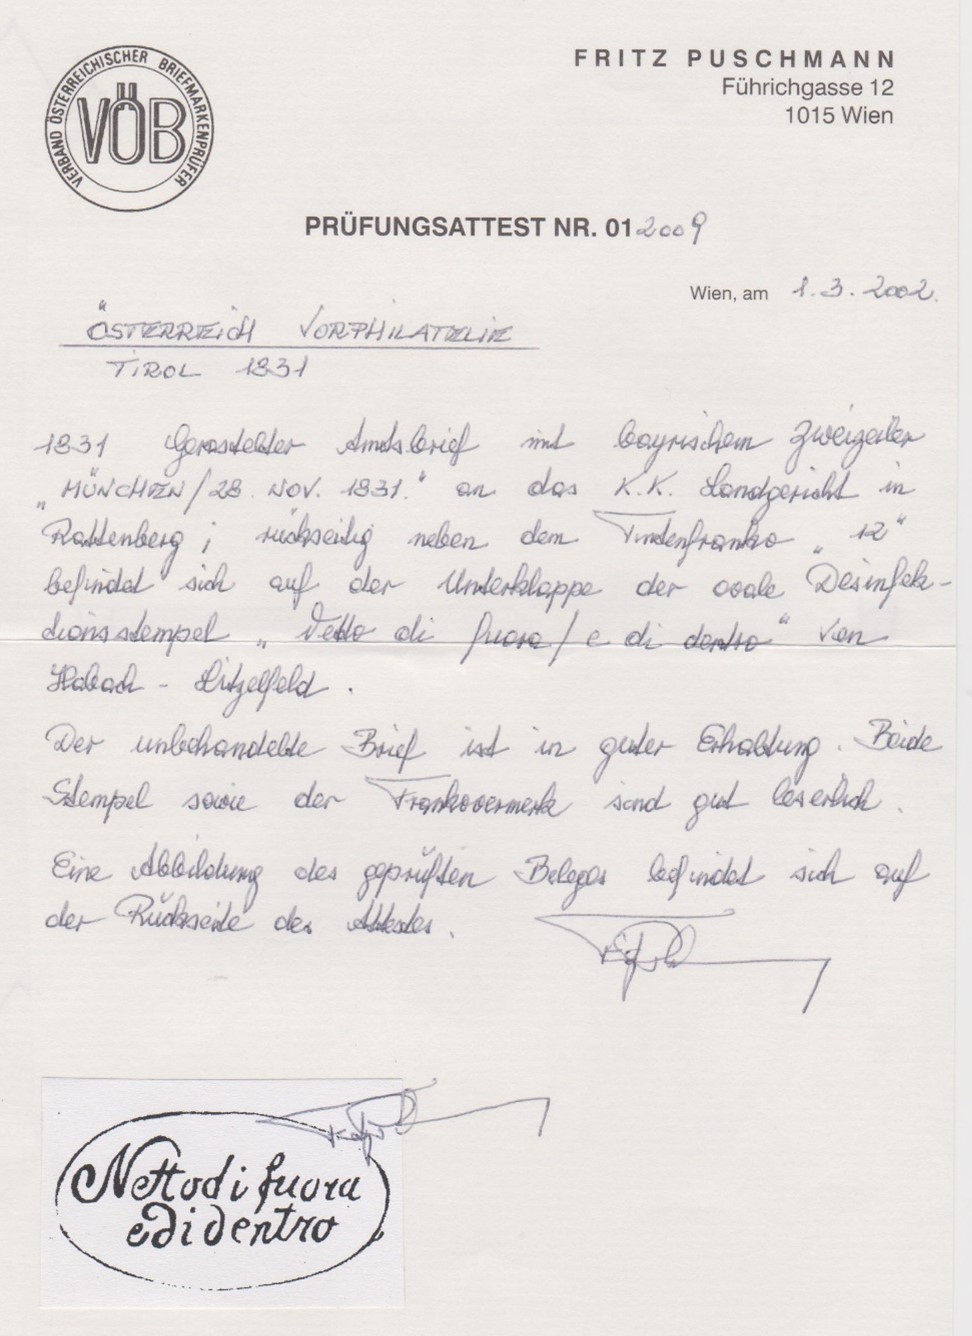 VERBAND ÖSTERREICHISCHER BRIEFMARKENPRÜFER
VÖB
FRITZ PUSCHMANN
Führichgasse 12
1015 Wien
PRÜFUNGSATTEST NR. 012009
Wien, am 1.3.2002.
ÖSTERREICH VORPHILATELIE
TIROL 1831
1831 Gerastelter Amtsbrief mit bayrischem Zweizeiler
„MÜNCHEN/28. NOV. 1831." an das K.K. Landgericht in
Rattenberg; rückseitig neben dem Tintenfranko „12"
befindet sich auf der Unterklappe der ovale Desinfek-
tionsstempel „Netto di fuora/e di dentro" von
Habach - Litzelfeld.
Der unbehandelte Brief ist in guter Erhaltung. Beide
Stempel sowie der Frankovermerk sind gut leserlich.
Eine Abbildung des geprüften Beleges befindet sich auf
der Rückseite des Attestes.
Netto di fuora
e di dentro